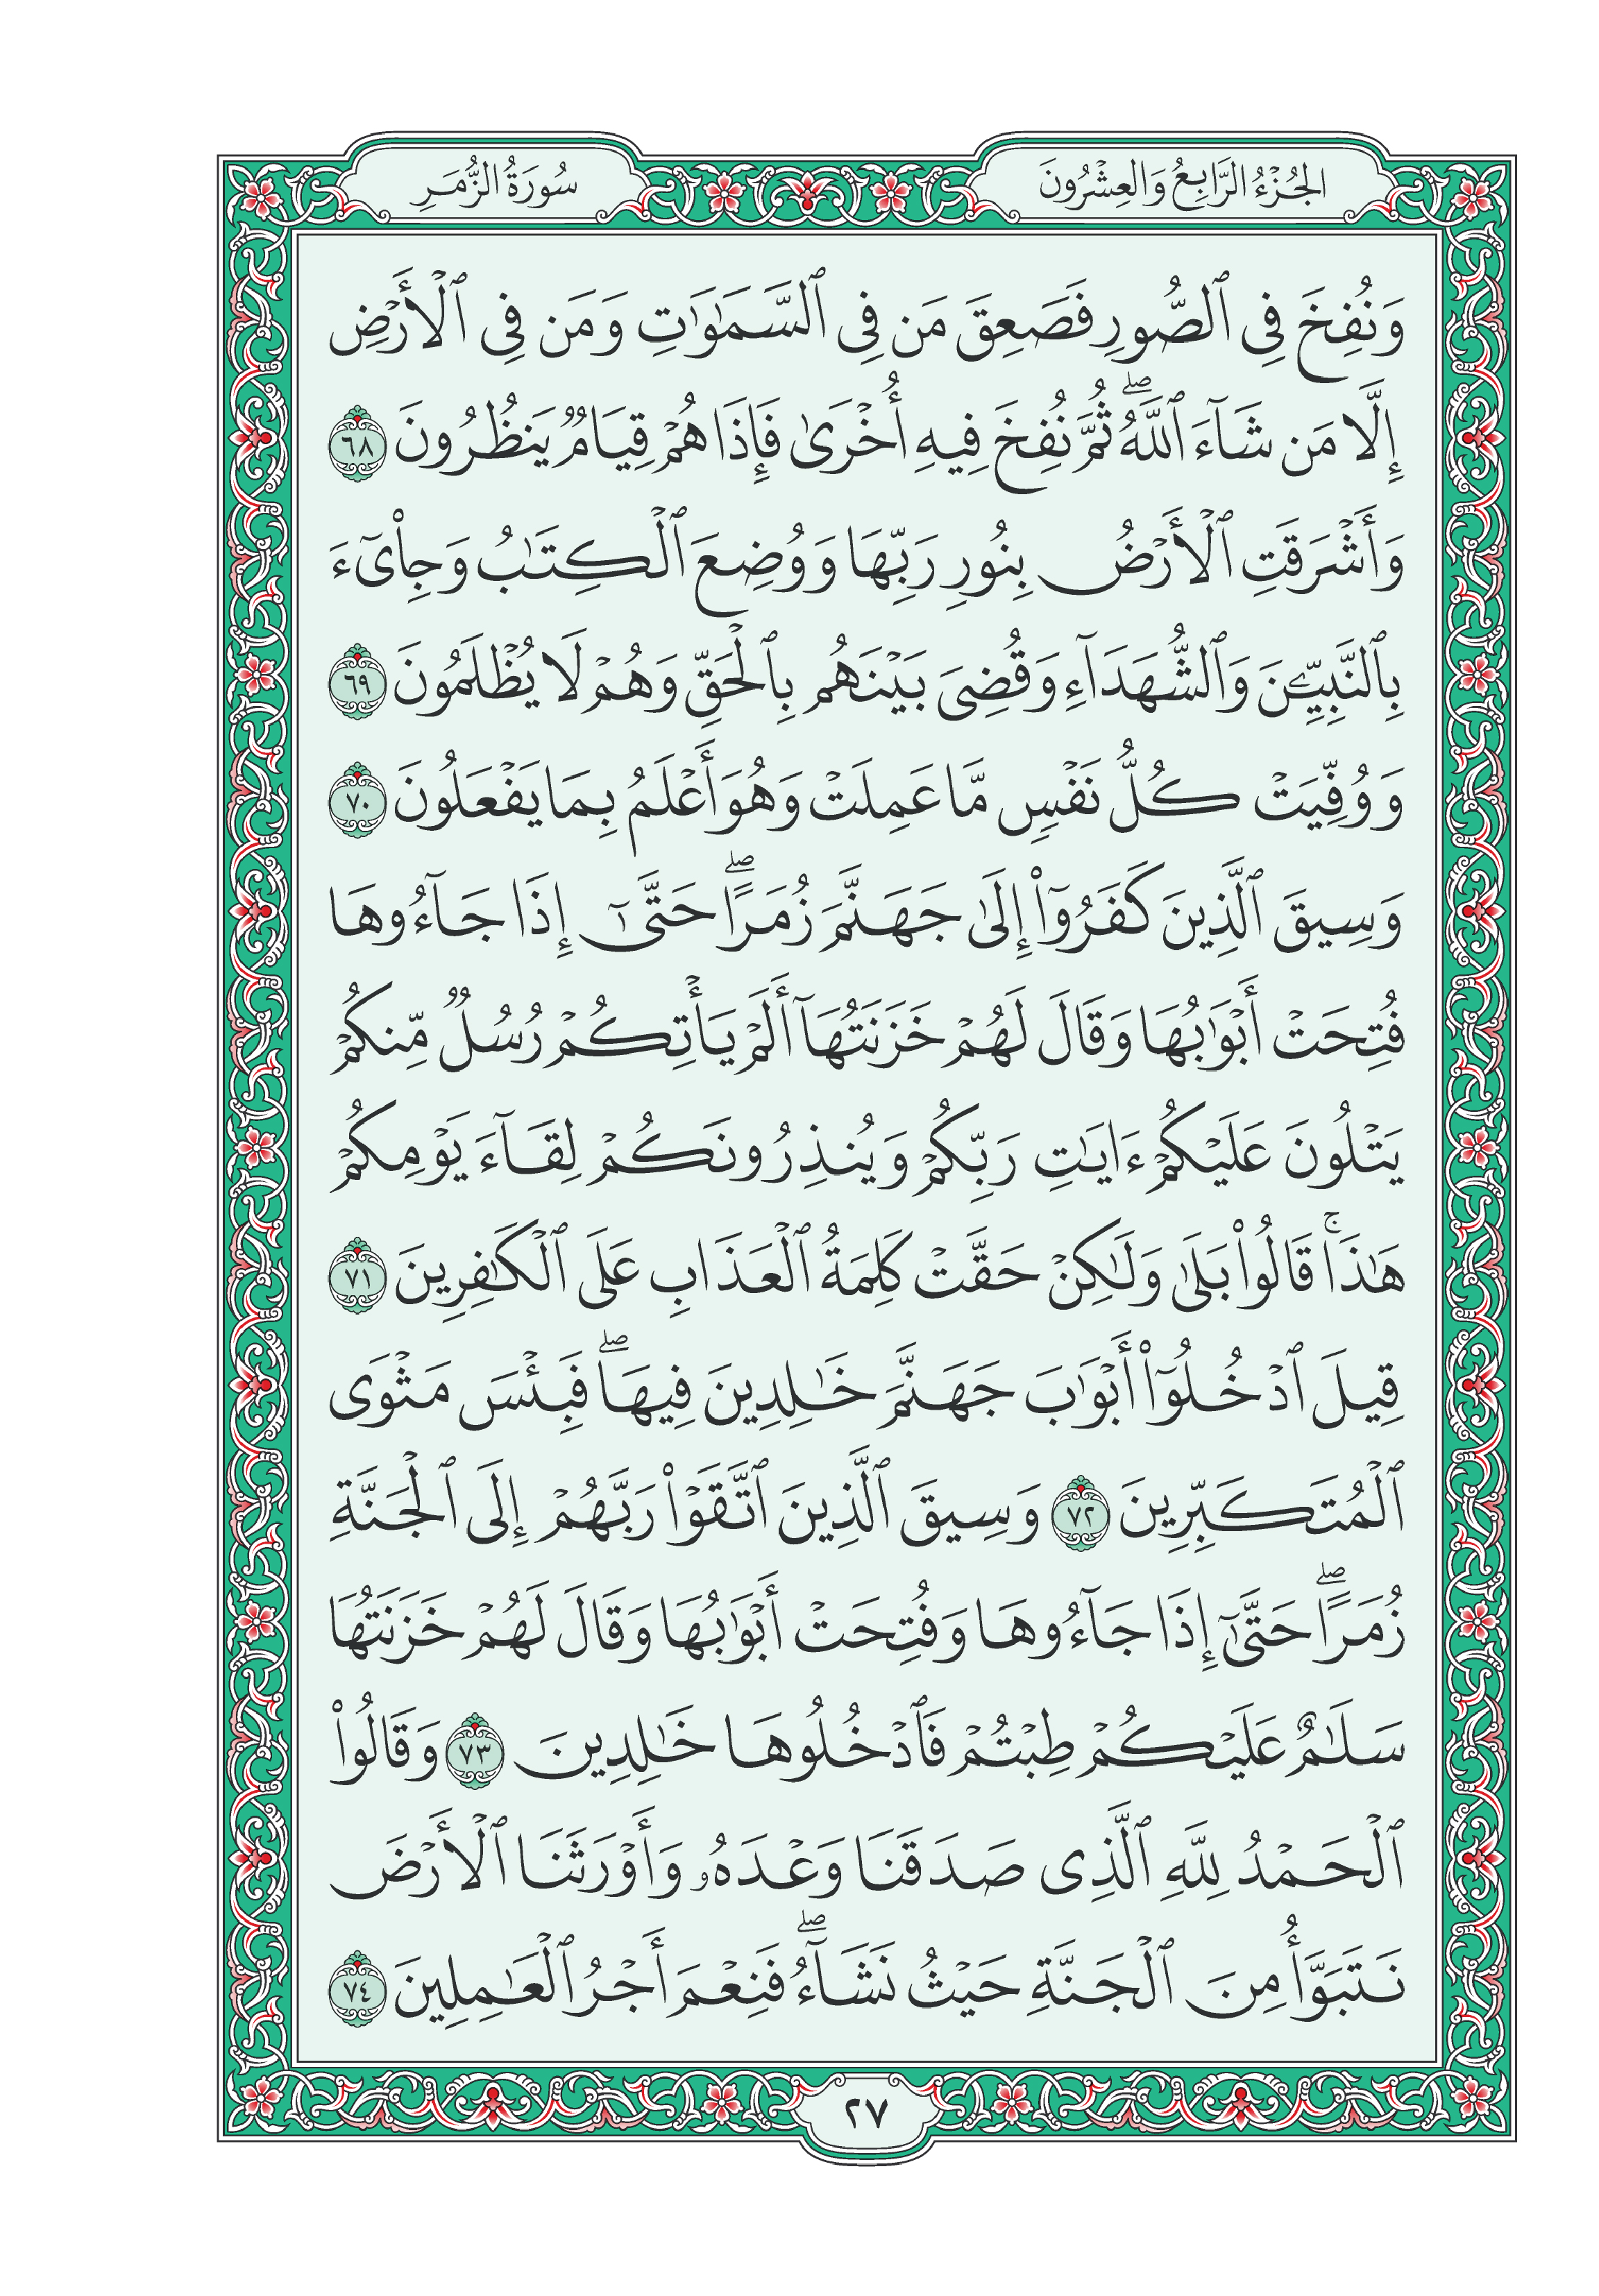 الجُزْءُ الرَّابِعُ وَالعِشْرُونَ
سُورَةُ الزُّمَرِ
وَنُفِخَ فِى ٱلصُّورِ فَصَعِقَ مَن فِى ٱلسَّمَٰوَٰتِ وَمَن فِى ٱلْأَرْضِ
إِلَّا مَن شَآءَ ٱللَّهُۖ ثُمَّ نُفِخَ فِيهِ أُخْرَىٰ فَإِذَا هُمْ قِيَامٌ يَنظُرُونَ ٦٨
وَأَشْرَقَتِ ٱلْأَرْضُ بِنُورِ رَبِّهَا وَوُضِعَ ٱلْكِتَٰبُ وَجِا۟ىٓءَ
بِٱلنَّبِيِّـۧنَ وَٱلشُّهَدَآءِ وَقُضِىَ بَيْنَهُم بِٱلْحَقِّ وَهُمْ لَا يُظْلَمُونَ ٦٩
وَوُفِّيَتْ كُلُّ نَفْسٍ مَّا عَمِلَتْ وَهُوَ أَعْلَمُ بِمَا يَفْعَلُونَ ٧٠
وَسِيقَ ٱلَّذِينَ كَفَرُوٓا۟ إِلَىٰ جَهَنَّمَ زُمَرًاۖ حَتَّىٰٓ إِذَا جَآءُوهَا
فُتِحَتْ أَبْوَٰبُهَا وَقَالَ لَهُمْ خَزَنَتُهَآ أَلَمْ يَأْتِكُمْ رُسُلٌ مِّنكُمْ
يَتْلُونَ عَلَيْكُمْ ءَايَٰتِ رَبِّكُمْ وَيُنذِرُونَكُمْ لِقَآءَ يَوْمِكُمْ
هَٰذَاۚ قَالُوا۟ بَلَىٰ وَلَٰكِنْ حَقَّتْ كَلِمَةُ ٱلْعَذَابِ عَلَى ٱلْكَٰفِرِينَ ٧١
قِيلَ ٱدْخُلُوٓا۟ أَبْوَٰبَ جَهَنَّمَ خَٰلِدِينَ فِيهَاۖ فَبِئْسَ مَثْوَى
ٱلْمُتَكَبِّرِينَ ٧٢ وَسِيقَ ٱلَّذِينَ ٱتَّقَوْا۟ رَبَّهُمْ إِلَى ٱلْجَنَّةِ
زُمَرًاۖ حَتَّىٰٓ إِذَا جَآءُوهَا وَفُتِحَتْ أَبْوَٰبُهَا وَقَالَ لَهُمْ خَزَنَتُهَا
سَلَٰمٌ عَلَيْكُمْ طِبْتُمْ فَٱدْخُلُوهَا خَٰلِدِينَ ٧٣ وَقَالُوا۟
ٱلْحَمْدُ لِلَّهِ ٱلَّذِى صَدَقَنَا وَعْدَهُۥ وَأَوْرَثَنَا ٱلْأَرْضَ
نَتَبَوَّأُ مِنَ ٱلْجَنَّةِ حَيْثُ نَشَآءُۖ فَنِعْمَ أَجْرُ ٱلْعَٰمِلِينَ ٧٤
٢٧